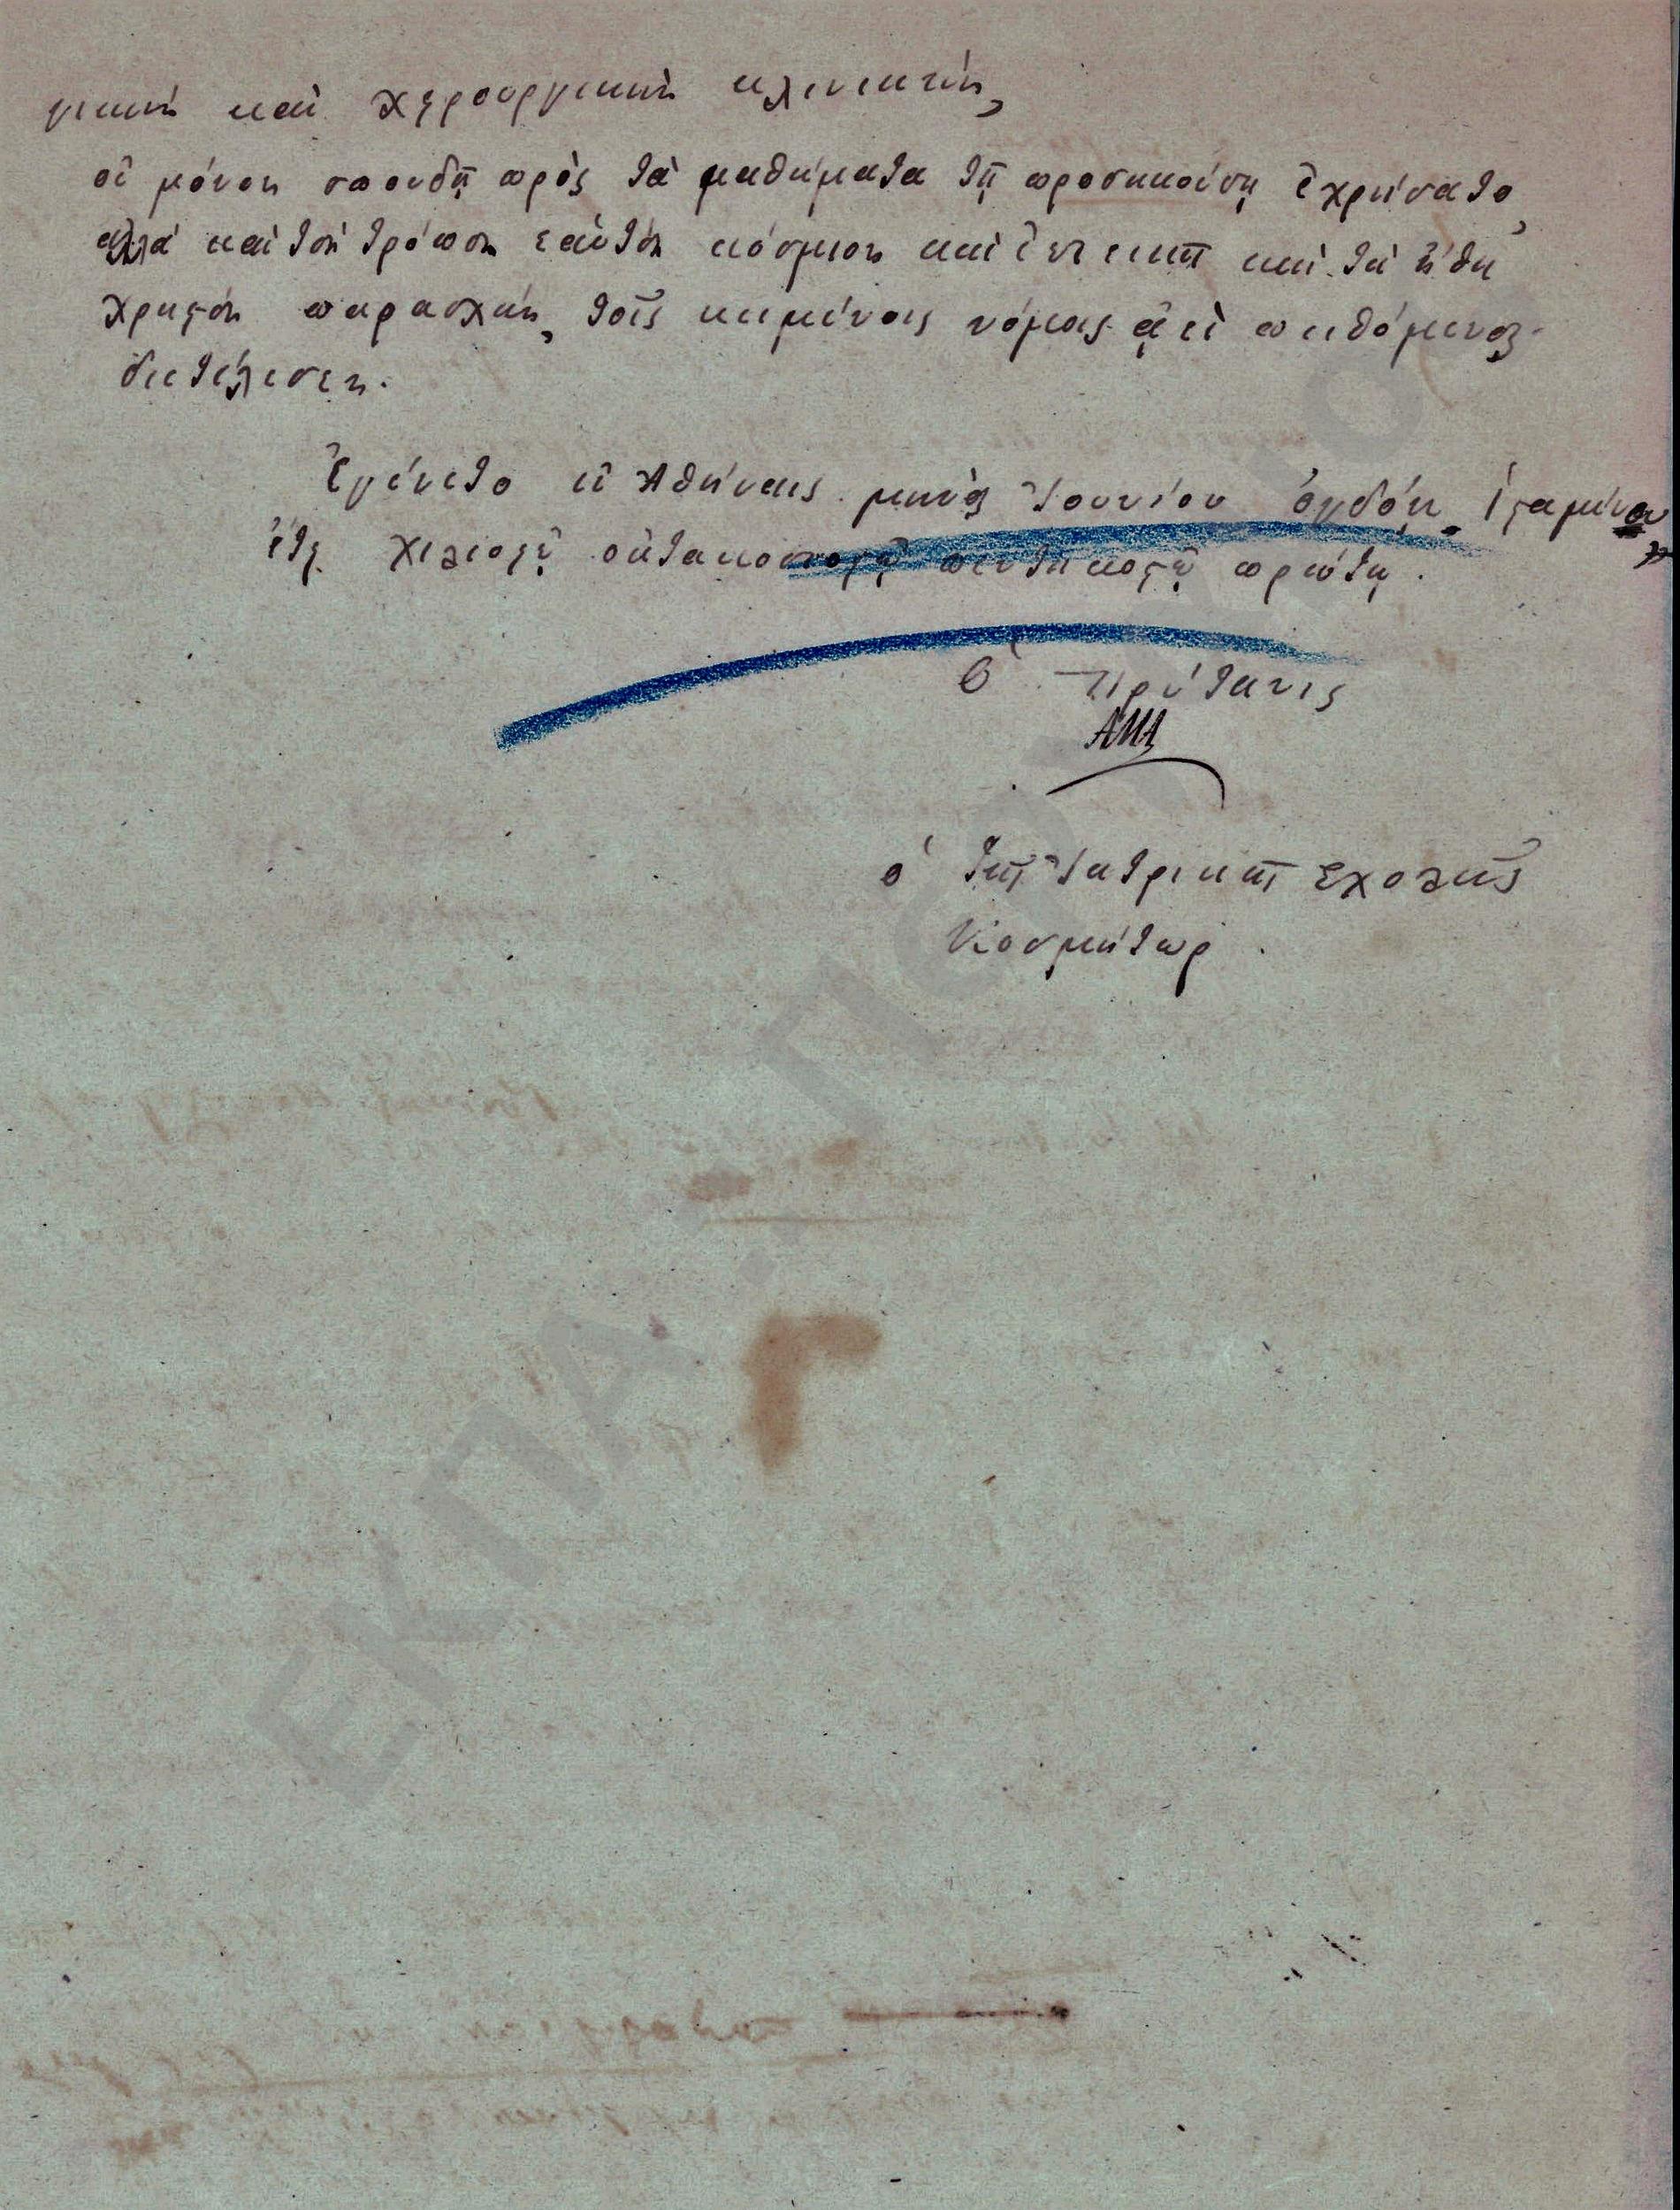 γικὴν καὶ χειρουργικὴν κλινικήν,
οὐ μόνον σπουδῇ πρὸς τὰ μαθήματα τῇ προσηκούσῃ ἐχρήσατο,
ἀλλὰ καὶ τὸν τρόπον ἑαυτὸν κόσμιον καὶ ἐπιεικῆ καὶ τὰ ἤθη
χρηστὸν παρασχών, τοῖς κειμένοις νόμοις ἀεὶ πειθόμενος
διετέλεσεν.
Ἐγένετο ἐν Ἀθήναις μηνὸς Ἰουνίου ὀγδόῃ ἱσταμένου
ἔτει χιλιοστῷ ὀκτακοσιοστῷ πεντηκοστῷ πρώτῳ.
Ὁ Πρύτανις
ὁ τῆς Ἰατρικῆς Σχολῆς
Κοσμήτωρ.
ΕΚΠΑ